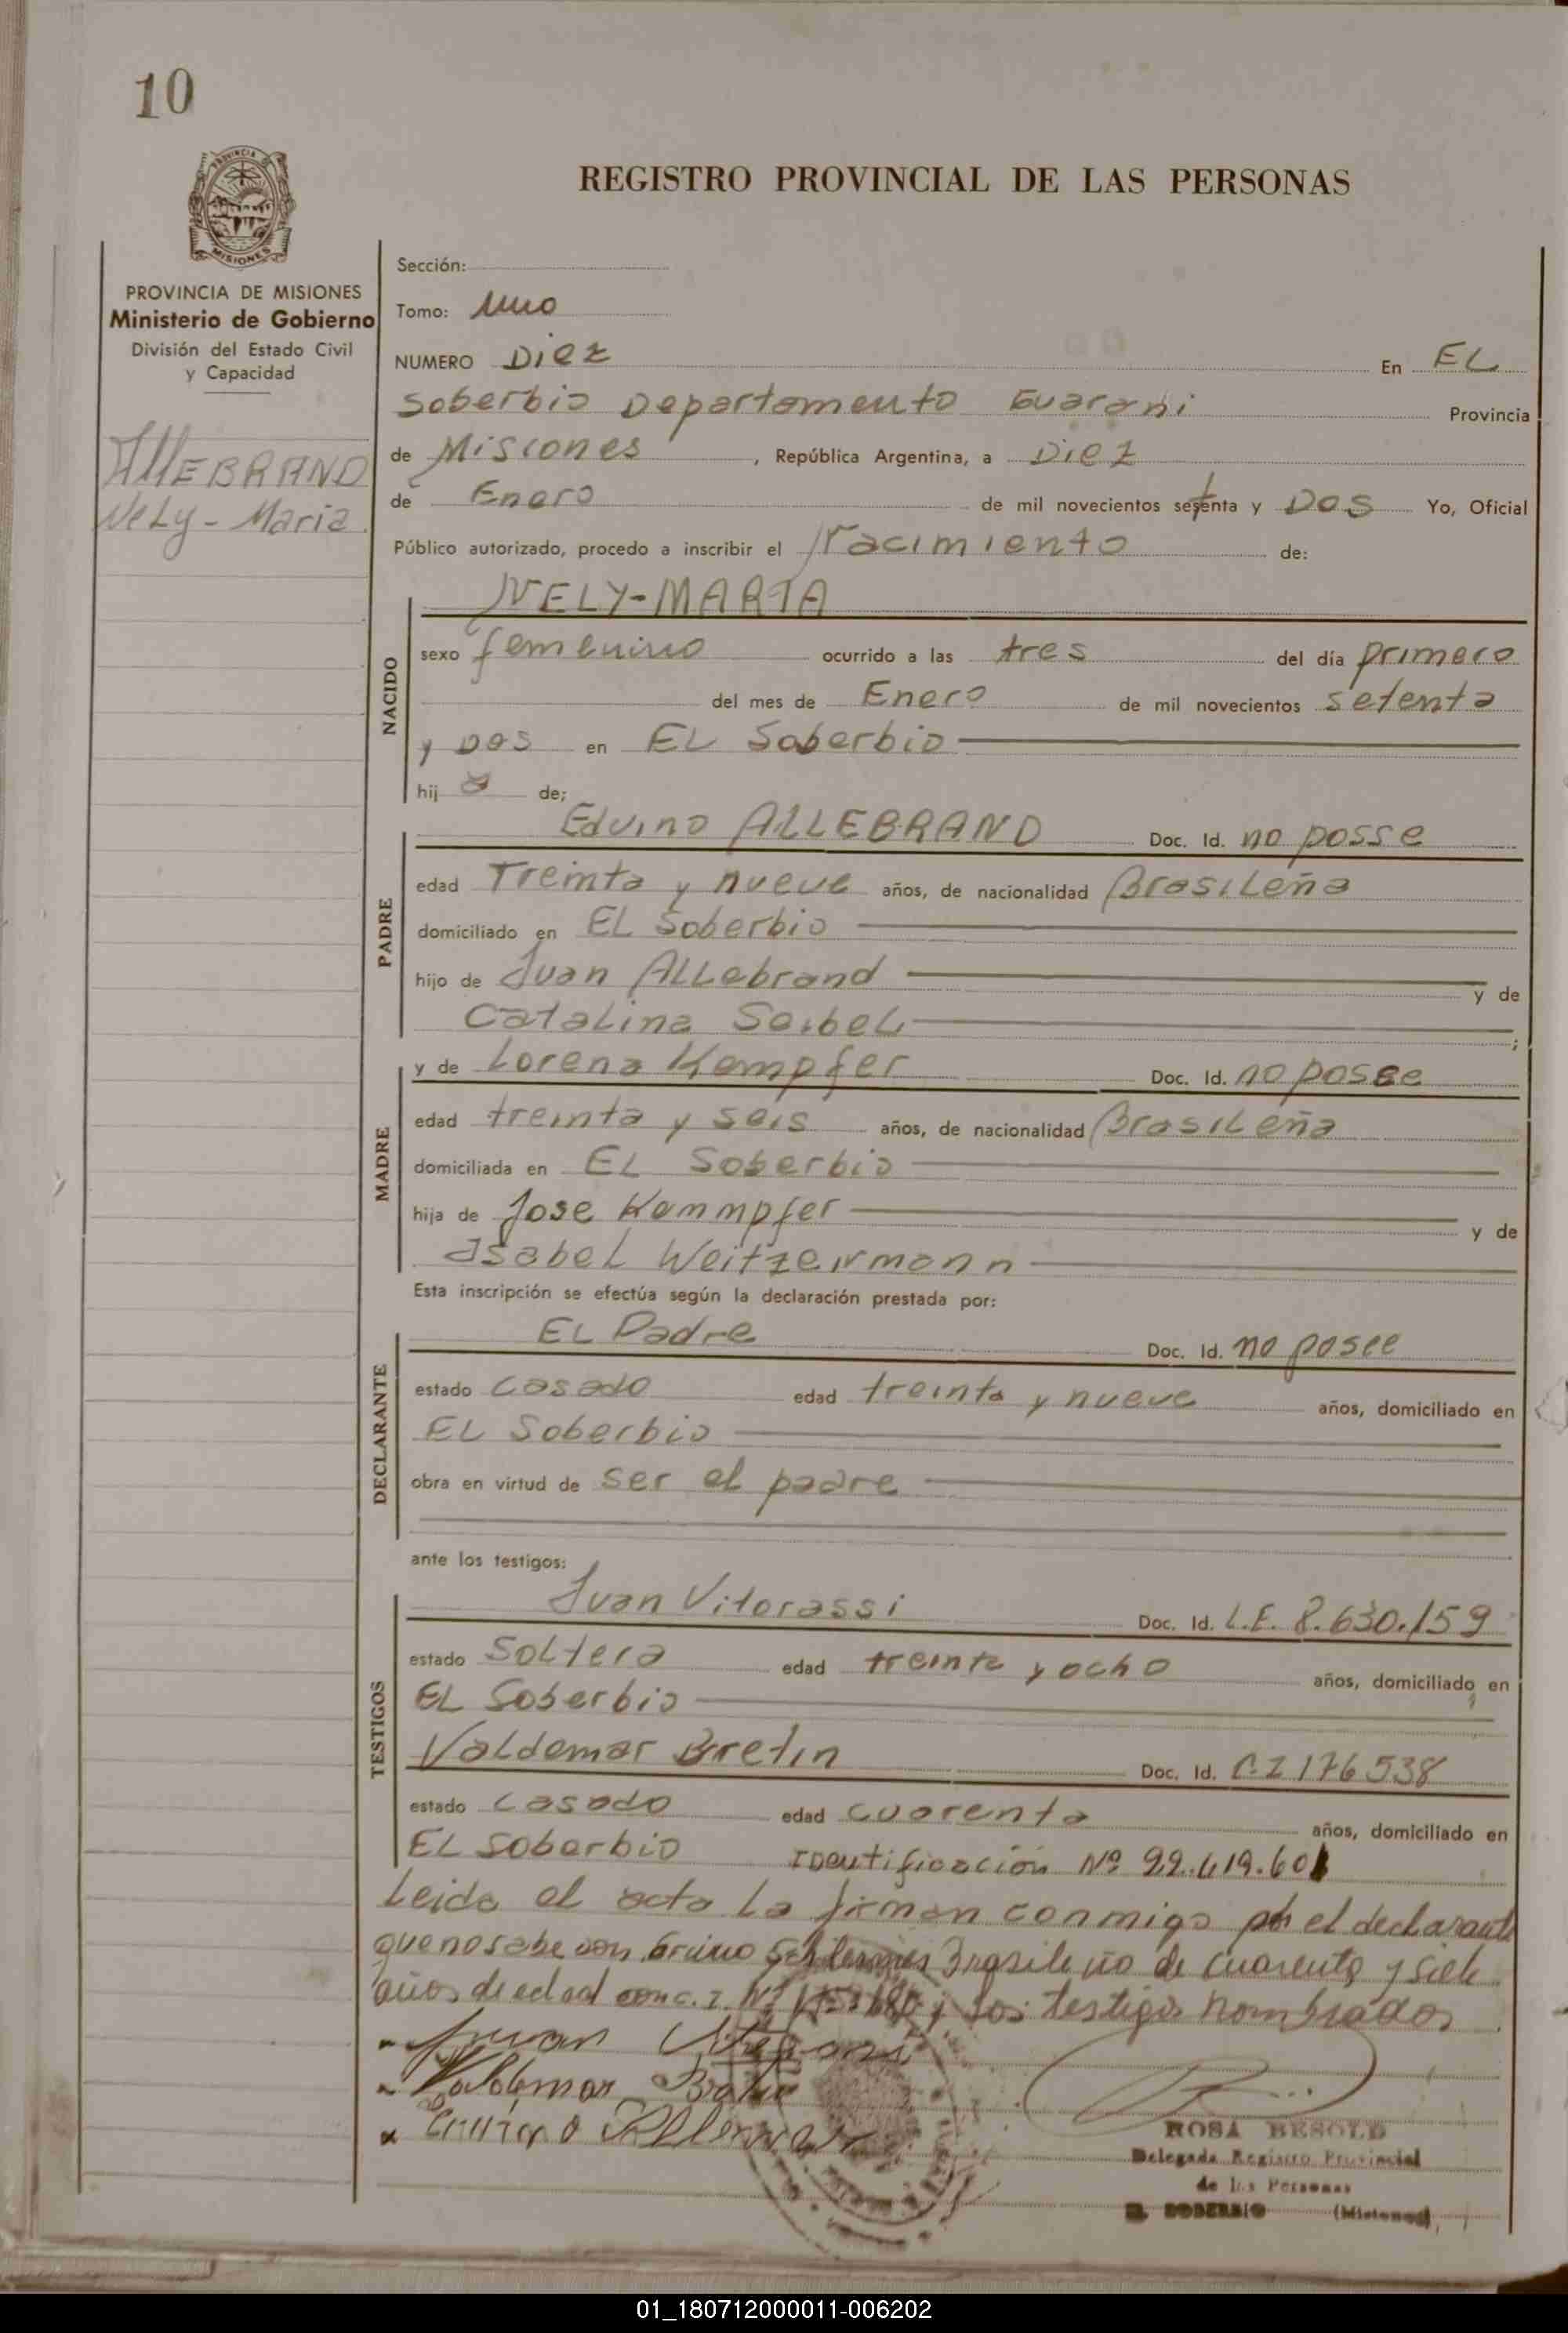 10
PROVINCIA DE
MISIONES
REGISTRO PROVINCIAL DE LAS PERSONAS
PROVINCIA DE MISIONES
Ministerio de Gobierno
División del Estado Civil
y Capacidad
AllEBRAND
Nely - Maria
Sección:
Tomo: Uno
NUMERO Diez En EL
Soberbio Departamento Guarani Provincia
de Misiones, República Argentina, a Diez
de Enero de mil novecientos setenta y Dos Yo, Oficial
Público autorizado, procedo a inscribir el Nacimiento de:
NACIDO
NELY-MARIA
sexo femenino ocurrido a las tres del día primero
del mes de Enero de mil novecientos setenta
y Dos en EL Soberbio
hij a de;
PADRE
Edvino ALLEBRAND Doc. Id. no posse
edad Treinta y nueve años, de nacionalidad Brasileña
domiciliado en EL Soberbio
hijo de Juan Allebrand y de
Catalina Seibel;
MADRE
y de Lorena Kempfer Doc. Id. no posee
edad treinta y seis años, de nacionalidad Brasileña
domiciliada en EL Soberbio
hija de Jose Kemmpfer y de
Isabel
Esta inscripción se efectúa según la declaración prestada por:
DECLARANTE
EL Padre Doc. Id. no posee
estado casado edad treinta y nueve años, domiciliado en
EL Soberbio
obra en virtud de ser el padre
ante los testigos:
TESTIGOS
Juan Vitorassi Doc. Id. L.E. 8.630.159
estado Soltero edad treinta y ocho años, domiciliado en
EL Soberbio
Valdemar Bretin Doc. Id. C.I 176538
estado casado edad cuarenta años, domiciliado en
EL Soberbio Identificación Nº 22.419.601
Leida el acta la firman conmigo por el declarante
que no sabe don Brasileño de cuarenta y siete
años de edad con c.I. Nº y los testigos nombrados
Juan
Valdemar
ROSA BESOLD
Delegada Registro Provincial
de las Personas
EL SOBERBIO (Misiones)
01_180712000011-006202